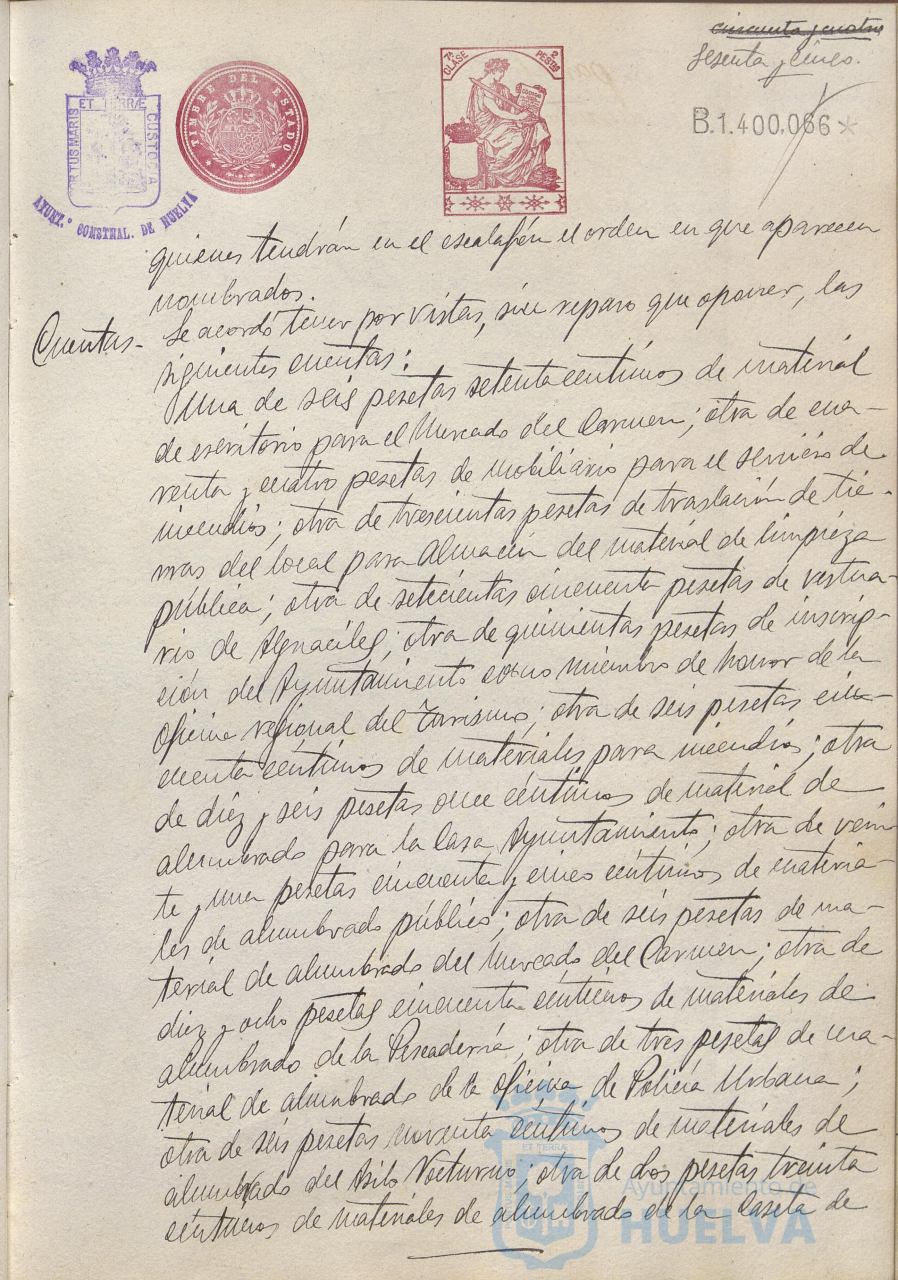 cincuenta y cuatro
Sesenta y cinco.
7ª CLASE 2 PESETAS
TIMBRE DEL ESTADO
PORTUS MARIS ET TERRÆ CUSTODIA
AYUNT.º CONSTNAL. DE HUELVA
B.1.400,066*
quienes tendrán en el escalafón el orden en que aparecen
nombrados.
Cuentas- Se acordó tener por vistas, sin reparo que oponer, las
siguientes cuentas:
Una de seis pesetas setenta céntimos de material
de escritorio para el Mercado del Carmen; otra de cua-
renta y cuatro pesetas de mobiliario para el servicio de
incendios; otra de trescientas pesetas de traslación de tie-
rras del local para Almacén del material de limpieza
pública; otra de setecientas cincuenta pesetas de vestua-
rio de Alguaciles; otra de quinientas pesetas de inscrip-
ción del Ayuntamiento como miembro de honor de la
Oficina regional del Turismo; otra de seis pesetas cin-
cuenta céntimos de materiales para incendios; otra
de diez y seis pesetas once céntimos de material de
alumbrado para la Casa Ayuntamiento; otra de vein-
te y una pesetas cincuenta y cinco céntimos de materia-
les de alumbrado público; otra de seis pesetas de ma-
terial de alumbrado del Mercado del Carmen; otra de
diez y ocho pesetas cincuenta céntimos de materiales de
alumbrado de la Pescadería; otra de tres pesetas de ma-
terial de alumbrado de la oficina de Policía Urbana;
otra de seis pesetas noventa céntimos de materiales de
alumbrado del Asilo Nocturno; otra de dos pesetas treinta
céntimos de materiales de alumbrado de la Caseta de
Ayuntamiento de
HUELVA